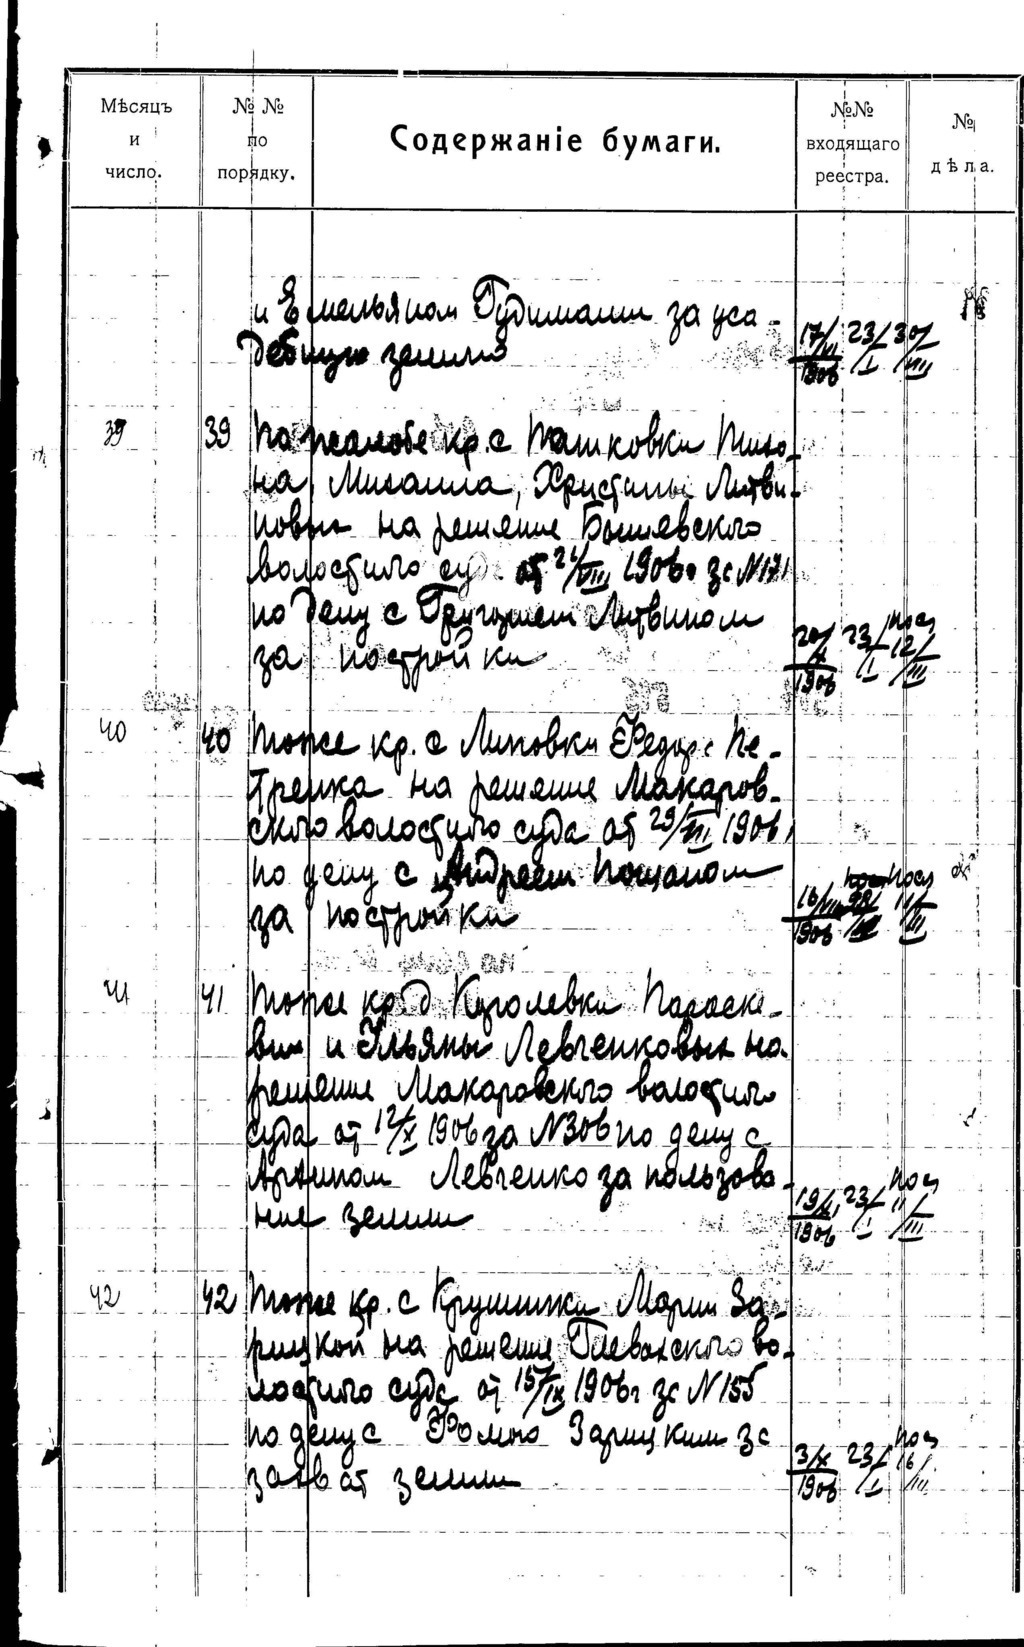 Мѣсяцъ и число.
№ № по порядку.
Содержаніе бумаги.
№№ входящаго реестра.
№ дѣла.
и Емельяном Гудимами за уса-
дебную землю
17/VII 1906 23/I 30/VIII
39 39 По жалобе кр. с Ташковки Тихо-
на, Михаила, Христины Литви-
новых на решение Бышевского
волостного суда от 21/VIII 1906 за N171
по делу с Григорием Литвином
за постройки
20/X 1906 23/I посл 12/III
40 40 Тоже кр. с Липовки Федора Пе-
тренка на решение Макаров-
ского волостного суда от 29/VII 1906
по делу с Андреем
за постройки
16/VIII 1906 посл 11/III
41 41 Тоже кр. д Параске-
вии и Ульяны Левченковых на
решение Макаровского волостного
суда от 12/X 1906 за N306 по делу с
Архипом Левченко за пользова-
ние землею
19/XI 1906 23/I посл 11/III
42 42 Тоже кр. с Крушинки Марии За-
рицкой на решение Плевахского во-
лостного суда от 15/IX 1906г за N155
по делу с Фомою Зарицким за
захват земли
3/X 1906 23/I посл 16/III